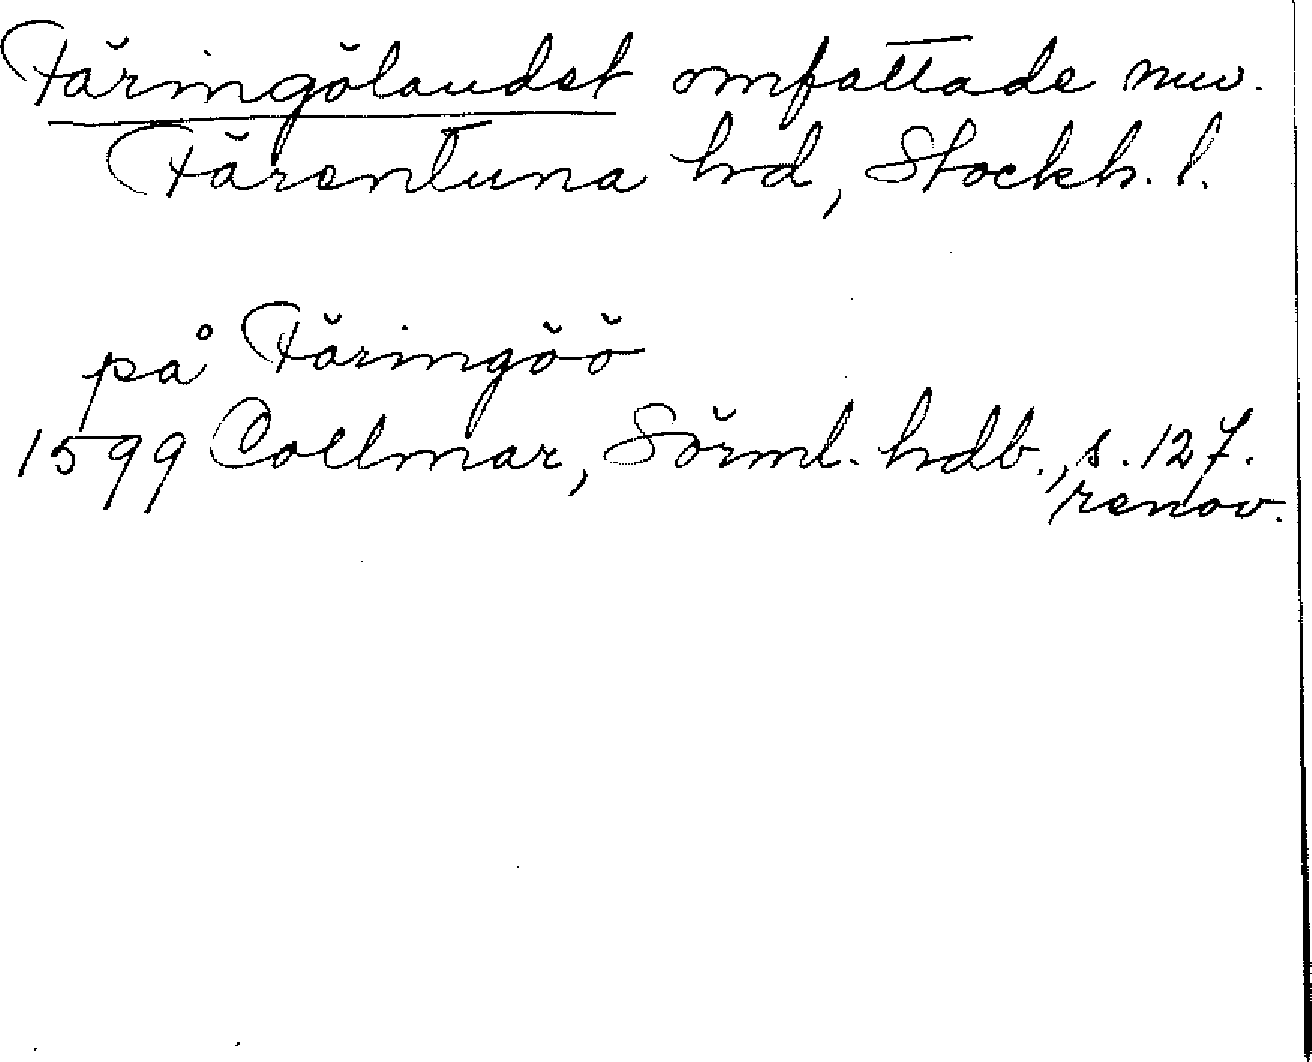 Färingölandet omfattade nuv.
Färentuna hd, Stockh. l.
på Färingöö
1599 Collmar, Sörml. hdb., s. 127.
renov.